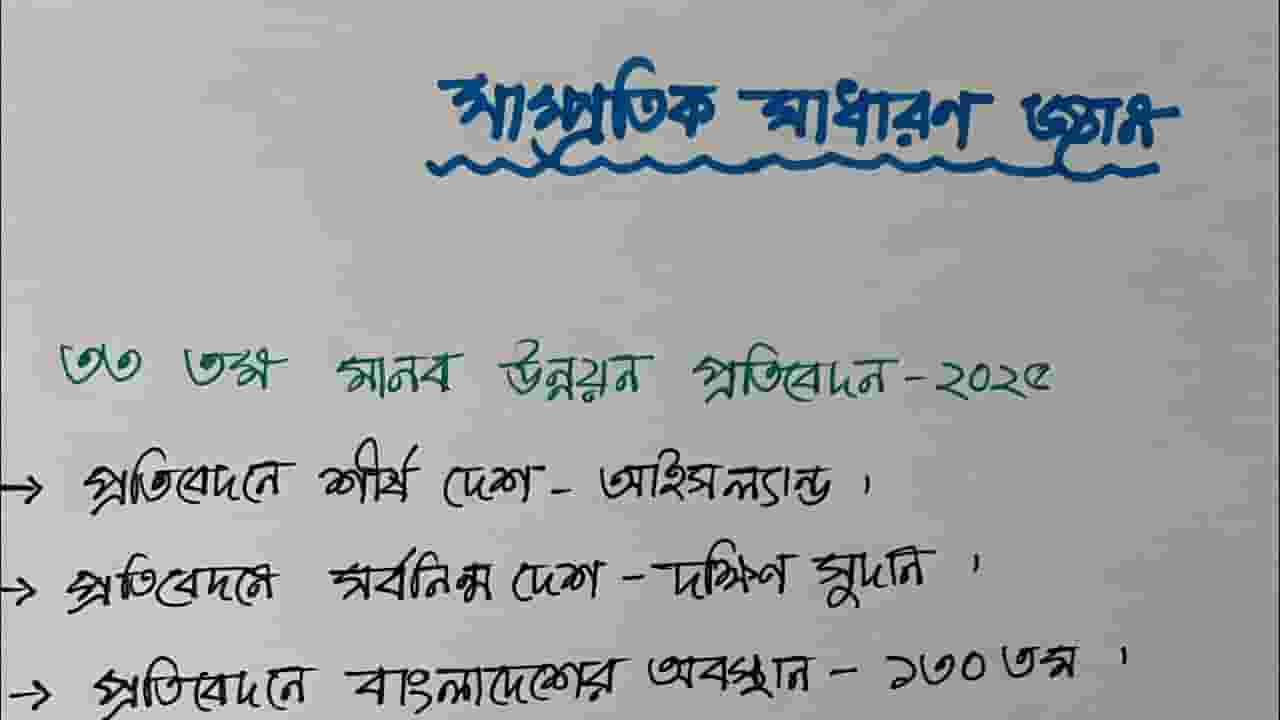 সাম্প্রতিক সাধারণ জ্ঞান
৩৩ তম মানব উন্নয়ন প্রতিবেদন - ২০২৫
→ প্রতিবেদনে শীর্ষ দেশ - আইসল্যান্ড ।
→ প্রতিবেদনে সর্বনিম্ন দেশ - দক্ষিণ সুদান ।
→ প্রতিবেদনে বাংলাদেশের অবস্থান - ১৩০ তম ।